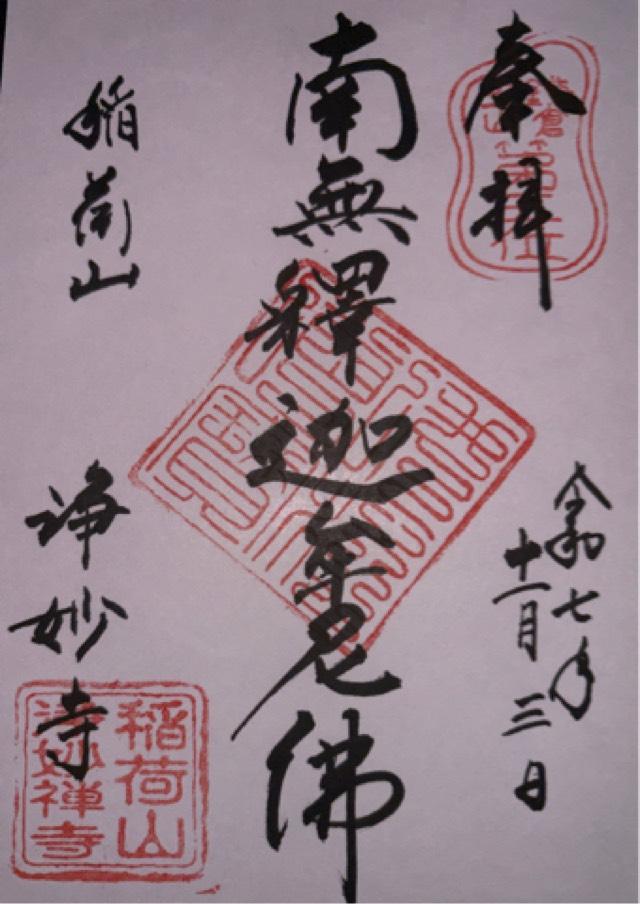 奉拝
令和七年
十一月三日
南無釋迦牟尼佛
稲荷山
浄妙寺
稲荷山
浄妙禅寺